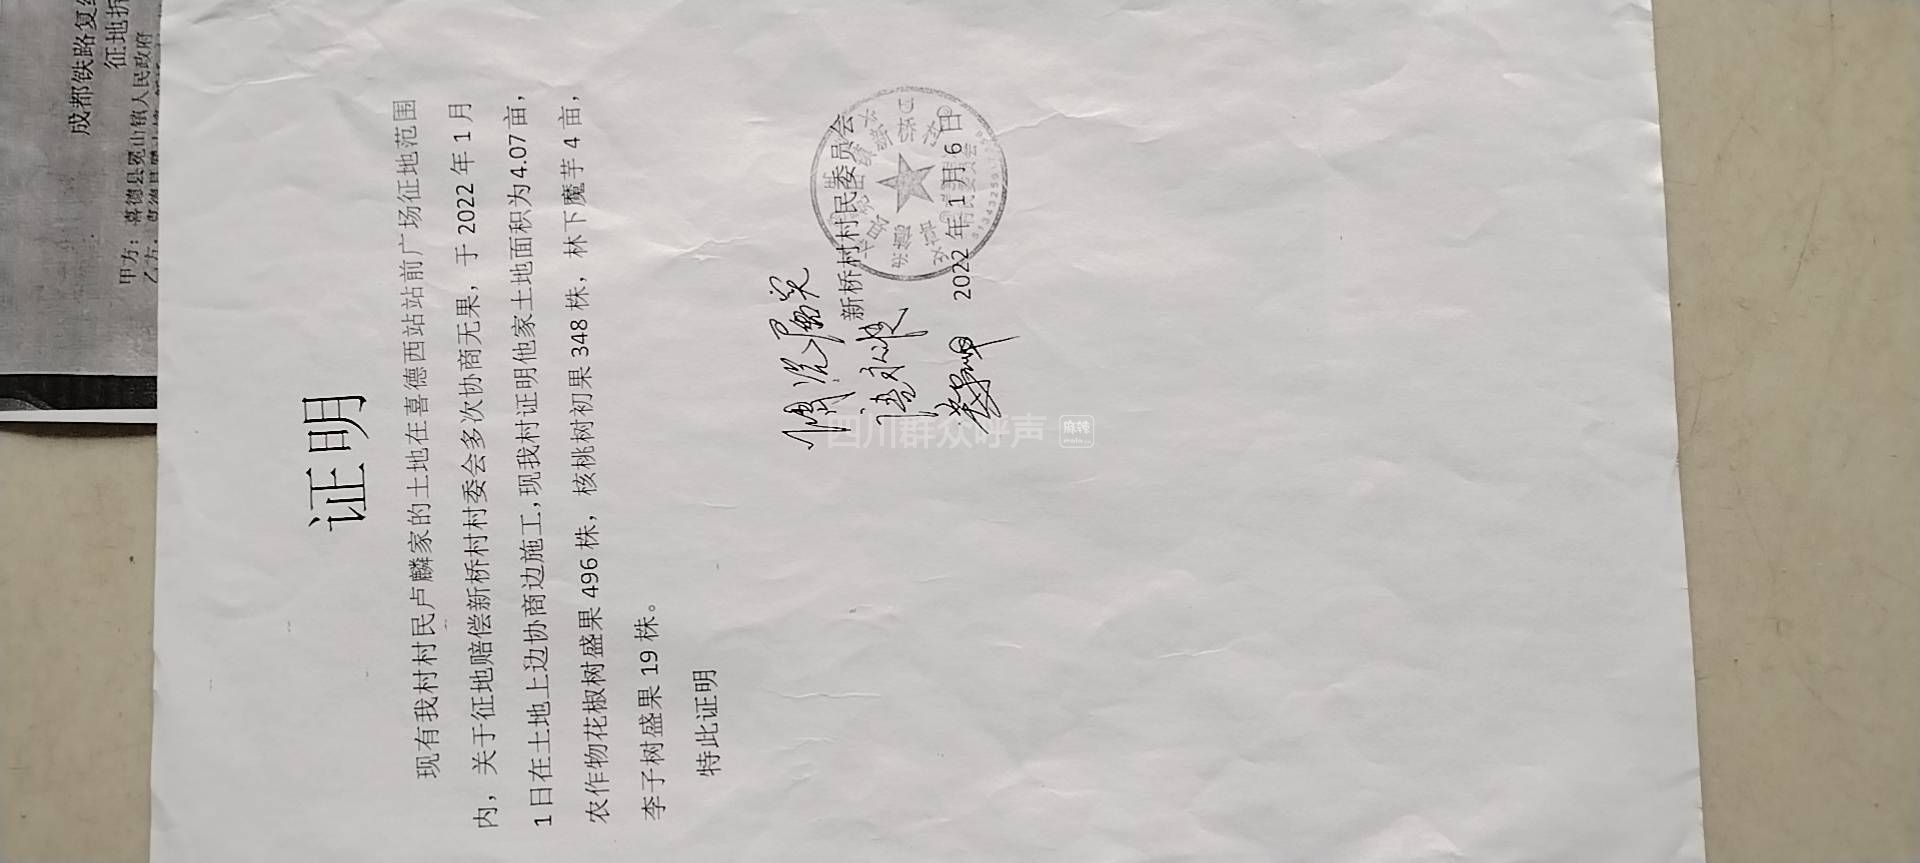 成都铁路复线
征地拆
甲方：喜德县冕山镇人民政府
乙方：
证明
现有我村村民卢麟家的土地在喜德西站站前广场征地范围
内，关于征地赔偿新桥村村委会多次协商无果，于 2022 年 1 月
1 日在土地上边协商边施工，现我村证明他家土地面积为4.07 亩，
农作物花椒树盛果 496 株，核桃树初果 348 株，林下魔芋 4 亩，
李子树盛果 19 株。
特此证明
新桥村村民委员会
2022 年 1 月 6 日
四川群众呼声
麻辣